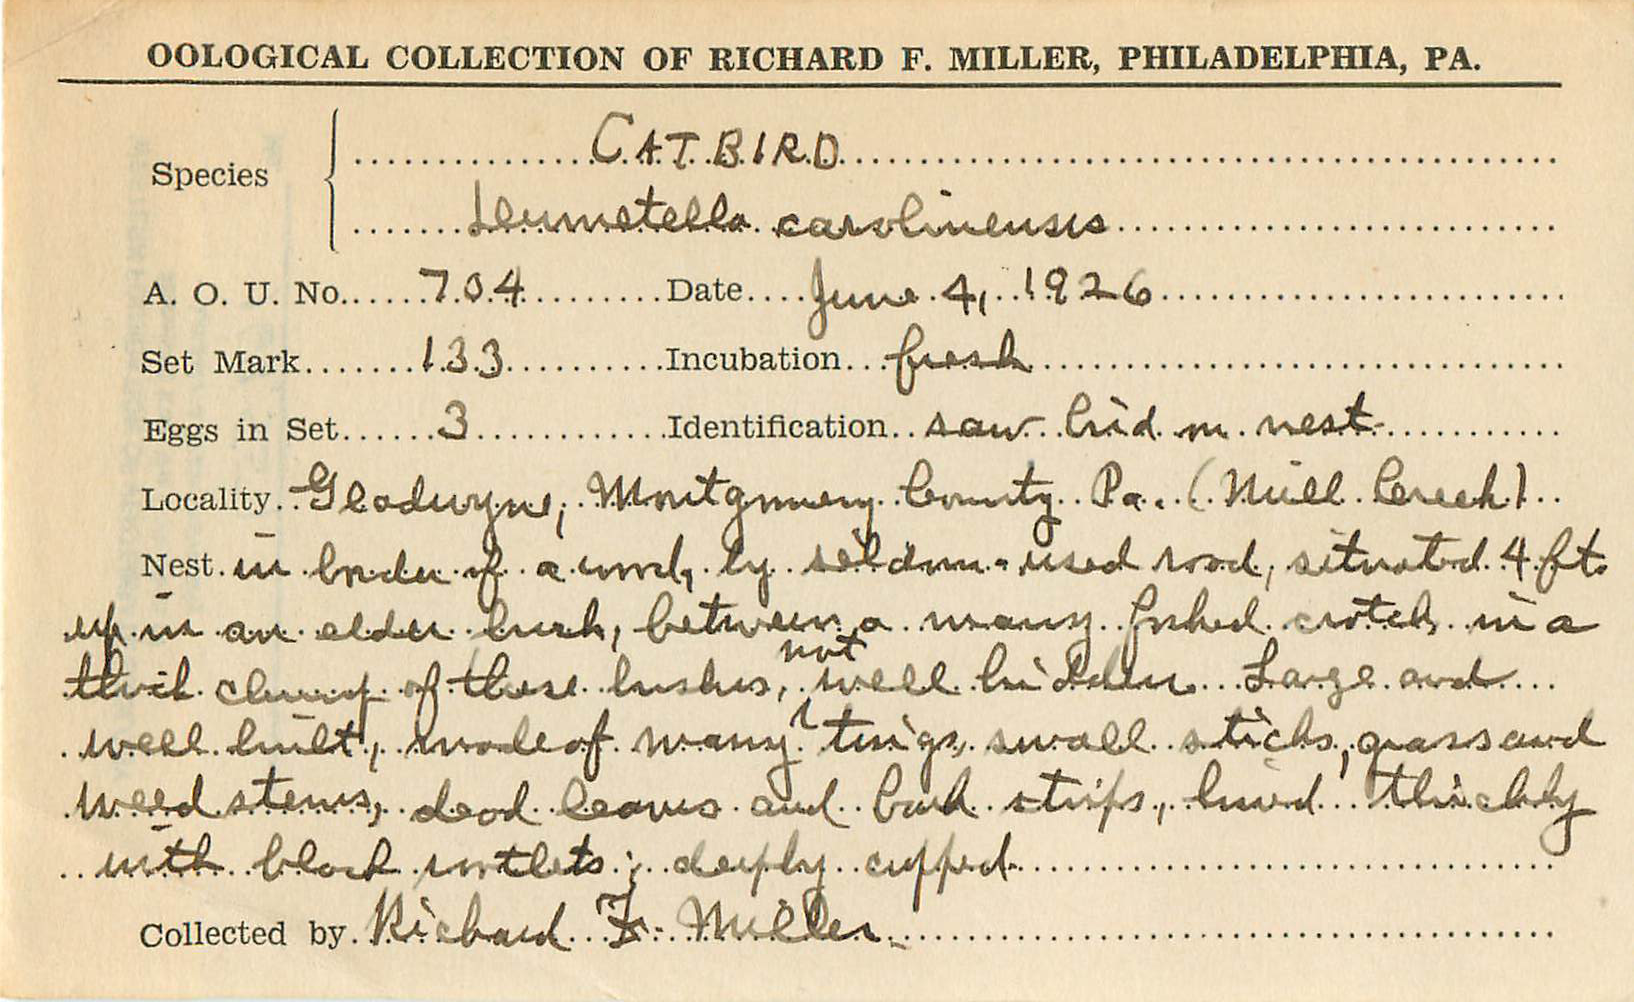 OOLOGICAL COLLECTION OF RICHARD F. MILLER, PHILADELPHIA, PA.
Species
CATBIRD
Dumetella carolinensis
A. O. U. No. 704 Date June 4, 1926
Set Mark 133 Incubation fresh
Eggs in Set 3 Identification saw bird on nest
Locality Gladwyne, Montgomery County Pa. (Mill Creek)
Nest in border of a wood, by seldom-used road, situated 4 ft.
up in an elder bush, between a many forked crotch in a
thick clump of these bushes, not well hidden. Large and
well built, made of many twigs, small sticks, grass and
weed stems, dead leaves and bark strips, lined thickly
with black rootlets; deeply cupped
Collected by Richard F. Miller